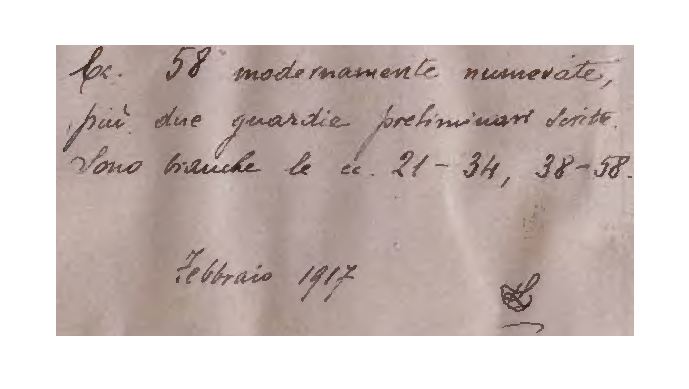 Cc. 58 modernamente numerate,
più due guardie preliminari scritte.
Sono bianche le cc. 21-34, 38-58.
Febbraio 1917